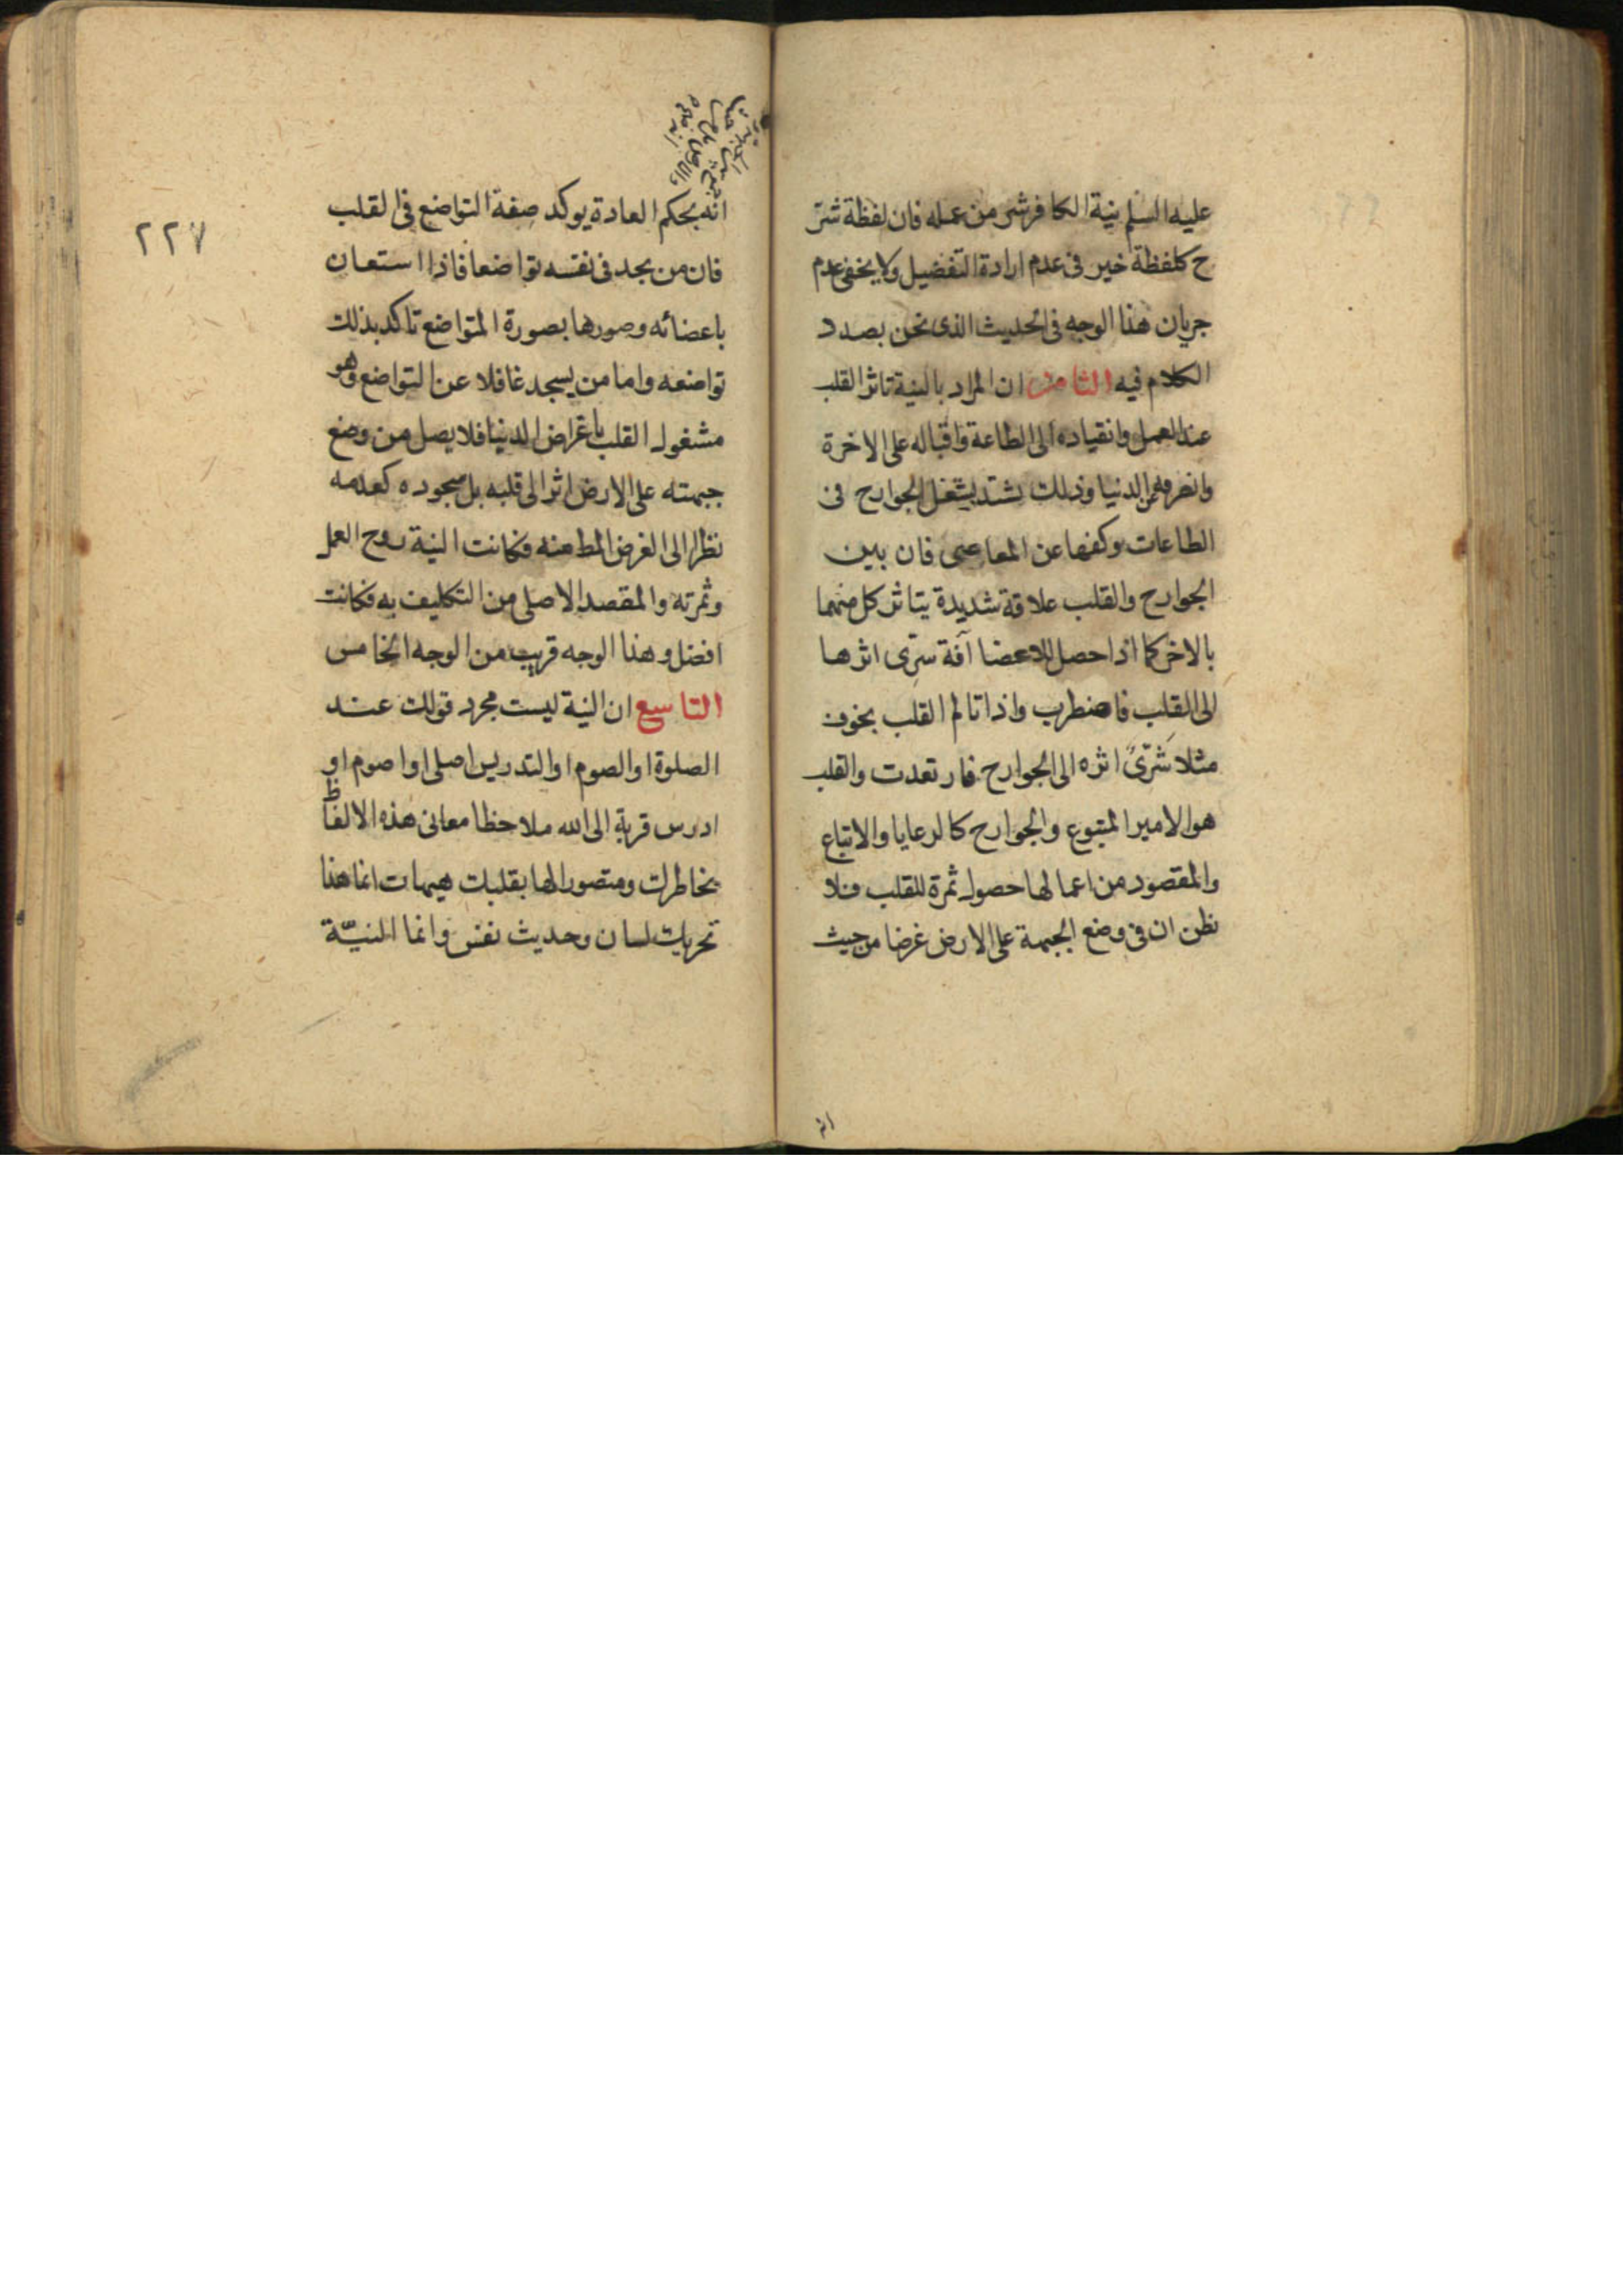 عليه السلم نية الكافر شر من عمله فان لفظة شرّ
ح كلفظة خير فى عدم ارادة التفضيل ولا يخفى عدم
جريان هذا الوجه فى الحديث الذى نحن بصدد
الكلام فيه الثامن ان المراد بالنية تاثر القلب
عند العمل وانقياده الى الطاعة واقباله على الاخرة
وانصرافه عن الدنيا وذلك يشتد بشغل الجوارح فى
الطاعات وكفها عن المعاصى فان بين
الجوارح والقلب علاقة شديدة يتاثر كل منهما
بالاخر كما اذا حصل للاعضا آفة سرى اثرها
الى القلب فاضطرب واذا تالم القلب بخوف
مثلا سرى اثره الى الجوارح فارتعدت والقلب
هو الامير المتبوع والجوارح كالرعايا والاتباع
والمقصود من اعمالها حصول ثمرة للقلب فلا
تظن ان فى وضع الجبهة على الارض غرضا من حيث
٢٢٧
انه بحكم العادة يوكد صفة التواضع فى القلب
فان من يجد فى نفسه تواضعا فاذا استعان
باعضائه وصورها بصورة المتواضع تاكد بذلك
تواضعه واما من يسجد غافلا عن التواضع وهو
مشغول القلب باغراض الدنيا فلا يصل من وضع
جبهته على الارض اثر الى قلبه بل سجوده كعدمه
نظرا الى الغرض المط منه فكانت النية روح العمل
وثمرته والمقصد الاصلى من التكليف به فكانت
افضل وهذا الوجه قريب من الوجه الخامس
التاسع ان النية ليست مجرد قولك عند
الصلوة او الصوم او التدريس اصلى او اصوم او
ادرس قربة الى الله ملاحظا معانى هذه الالفاظ
بخاطرك ومتصورا لها بقلبك هيهات انما هذا
تحريك لسان وحديث نفس وانما النيّة